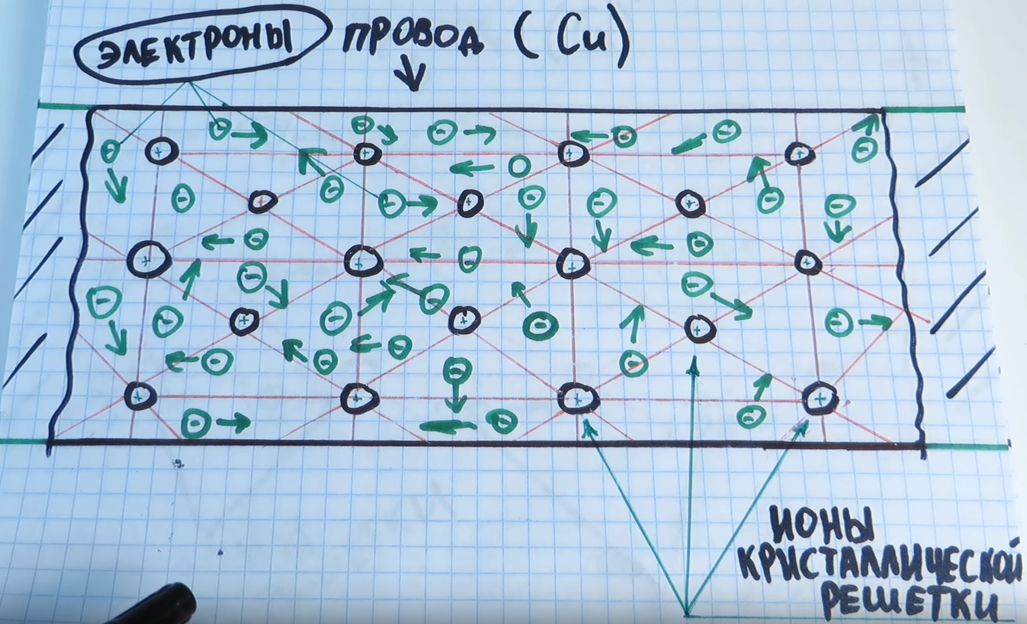 ЭЛЕКТРОНЫ ПРОВОД (Cu)
ИОНЫ
КРИСТАЛЛИЧЕСКОЙ
РЕШЕТКИ